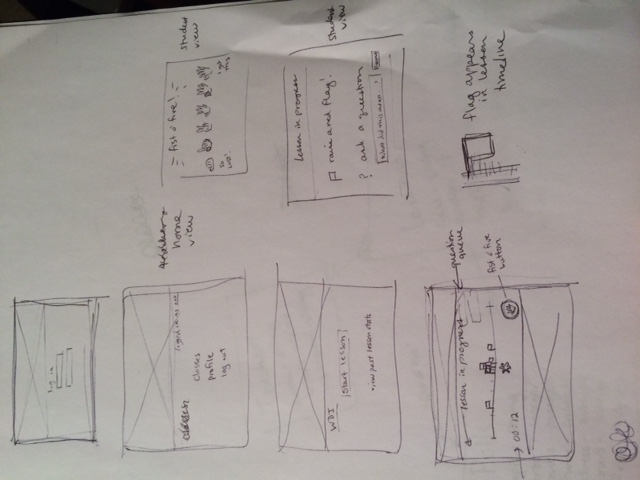 log in
home
view
logged in as
Classes
profile
log out
fist o' five!
so
lost!
i got
this
student
view
WDI
Start lesson
view past lesson stats
lesson in progress
raise red flag!
? ask a question
what did this mean
student
view
lesson in progress
question
queue
fist o' five
button
00:12
flag appears
in lesson
timeline